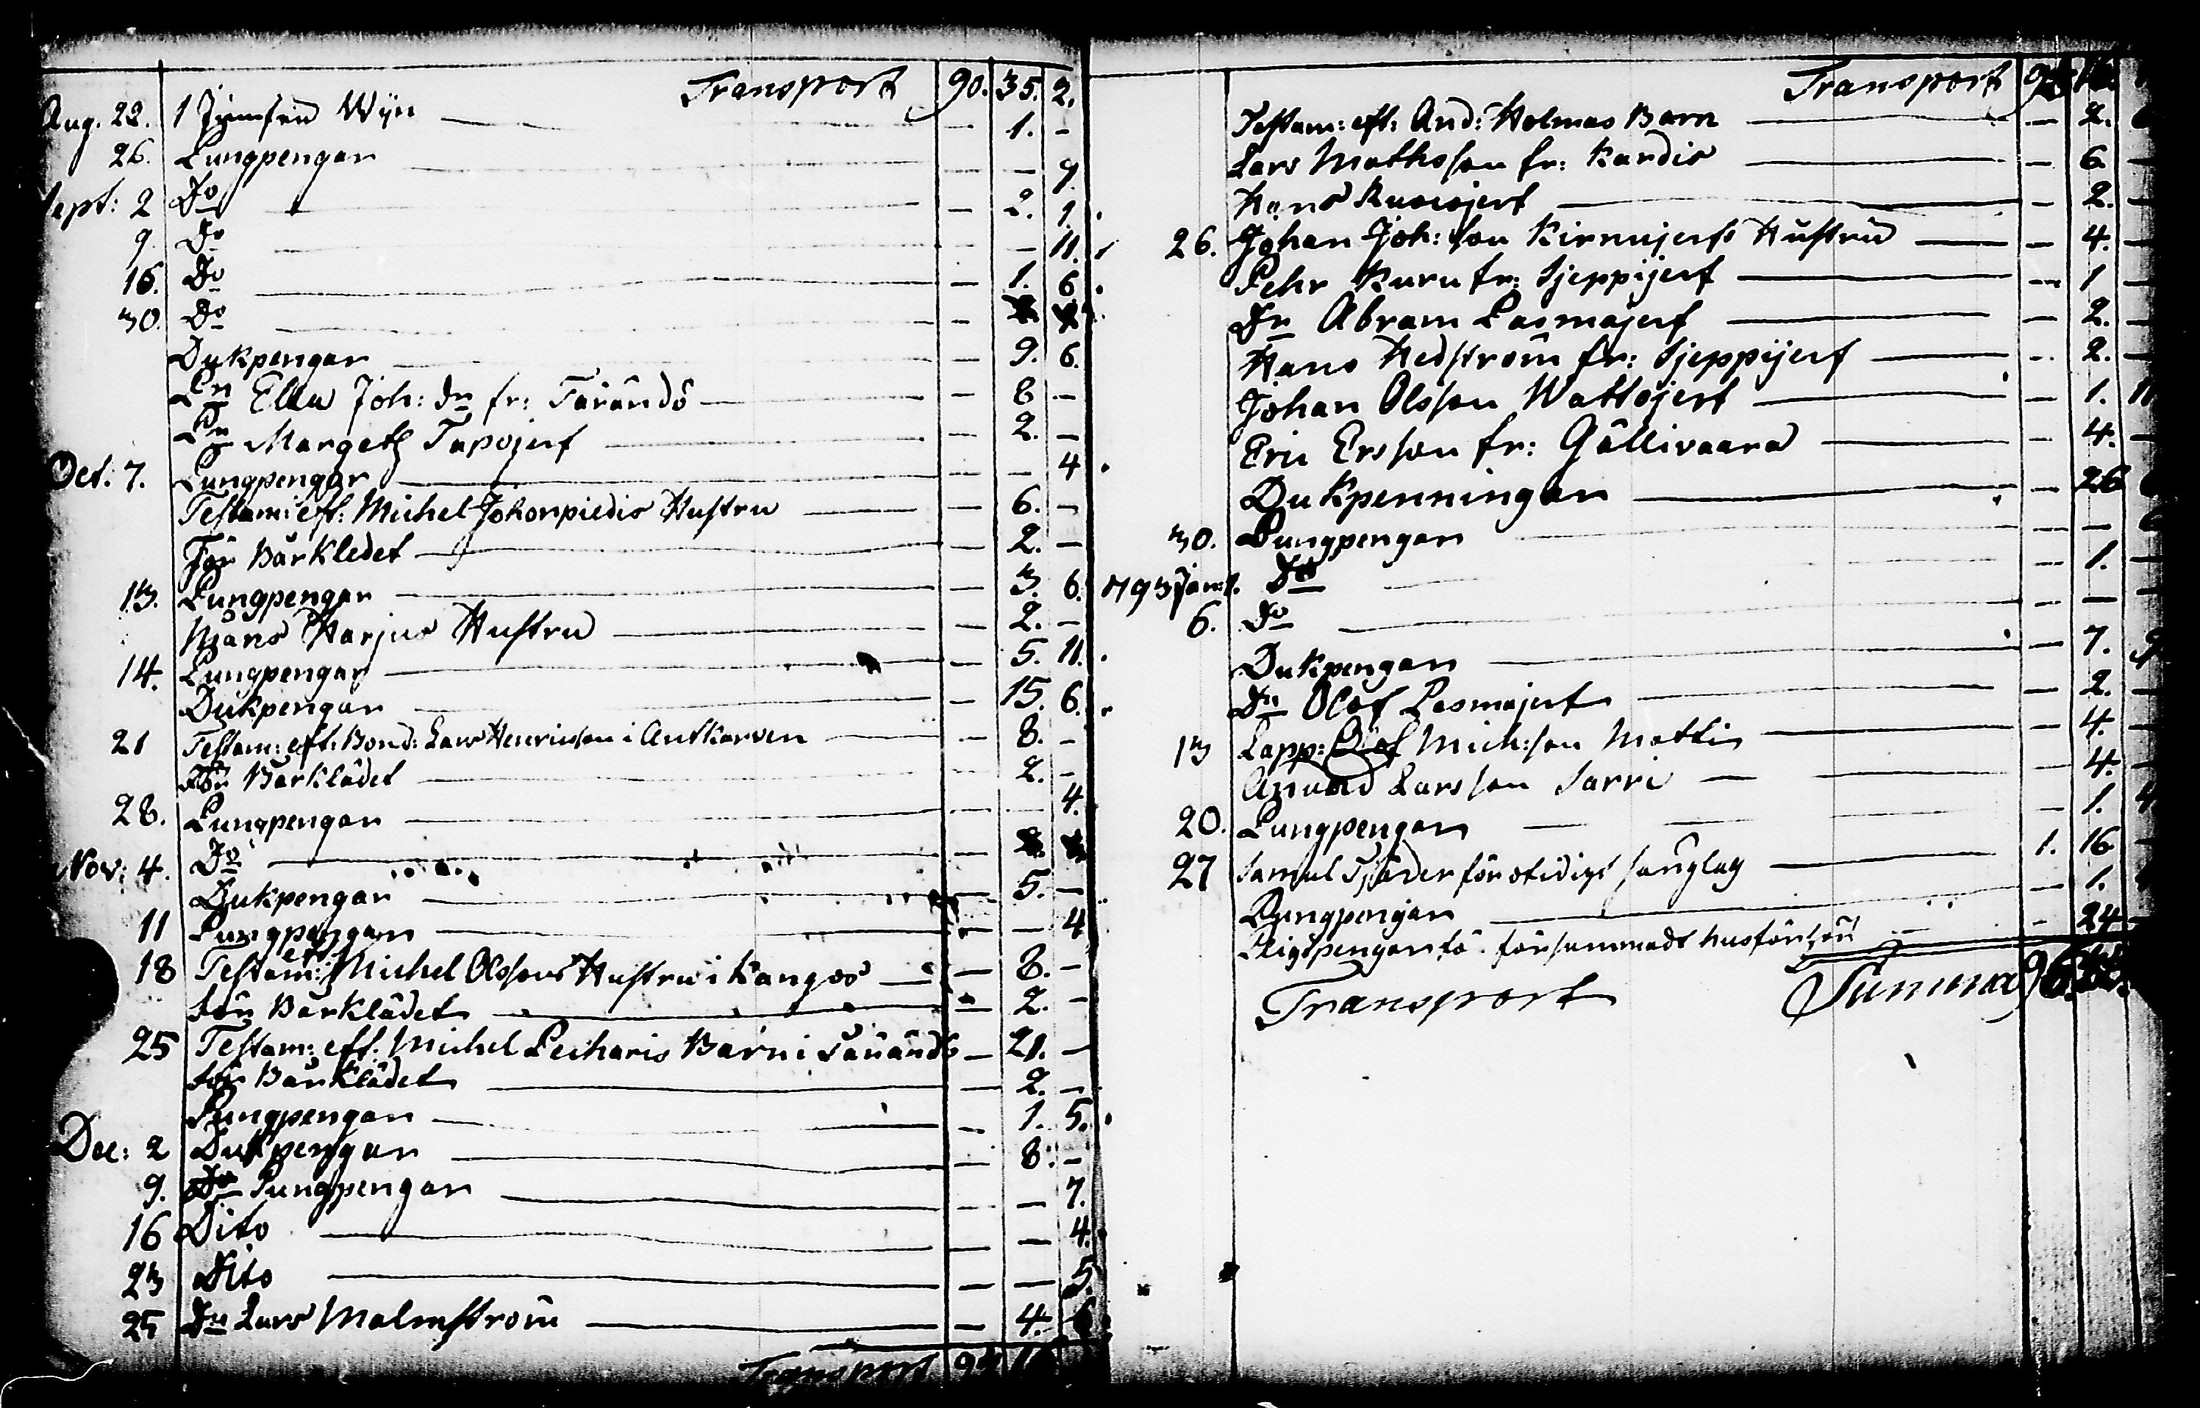 Transport 90. 35. 2.
Aug. 22. 1 Wyn — 1. -
26. Pungpengar — — 9
Sept: 2 Do — 2. 1.
9. Do — 11.
16. Do — 1. 6.
30. Do
Dukpengar — 9. 6.
En Ella Joh: dr fr: Tärändö — 8 -
En Margeth Tapojerf — 2. -
Oct. 7. Pungpengar — — 4
Testam: eft: Michel Johonpiedis Hustru — 6. -
För Bårkledet — 2. -
13. Pungpengar — 3. 6.
Måns Harjus Hustru — 2. -
14. Pungpengar — 5. 11.
Dukpengar — 15. 6.
21 Testam: eft: Bond: Lars Henricsson i — 8. -
För Bårklädet — 2. -
28. Pungpengar — — 4.
Nov: 4. Do
Dukpengar — 5. -
11 Pungpengar — — 4
18 Testam: eft Michel Olssons Hustru i Kangos — 8. -
för Bårklädet — 2. -
25 Testam: eft: Michel Barn i — 21. -
för Bårklädet — 2. -
Pungpengar — 1. 5.
Dec: 2 Dukpengar — 8. -
9. Do Pungpengar — — 7.
16 Dito — — 4.
23 Dito — — 5
25 Dn Lars Malmström — 4. 6
Transport
Transport
Testam: eft: And: Holmas Barn — 2.
Lars Mathsson fr: Kardis — 6 -
Hans — 2. -
26. Johan Joh: son Hustru — 4. -
Pehr Kuru fr: Sjeppijerf — 1 -
Dn Abram Lasmajerf — 2. -
Hans Hedström fr: Sjeppijerf — 2. -
Johan Olsson — 1. 11
Eric Ersson fr: Gällivaara — 4. -
Dukpenningar — 26
30. Pungpengar — — 6
1793 Jan: 1. Do — 1. -
6. Do — — -
Dukpengar — 7. 9
Dn Olof Lasmajerf — 2. -
13 Lapp: Mich:son Matti — 4. -
Anund Larsson Sarri — 4. -
20. Pungpengar — 1. 4
27 Samul för otidigt — 1. 16 -
Pungpengar — 1.
för försummadt husförhör — 24 -
Transport Summa 96